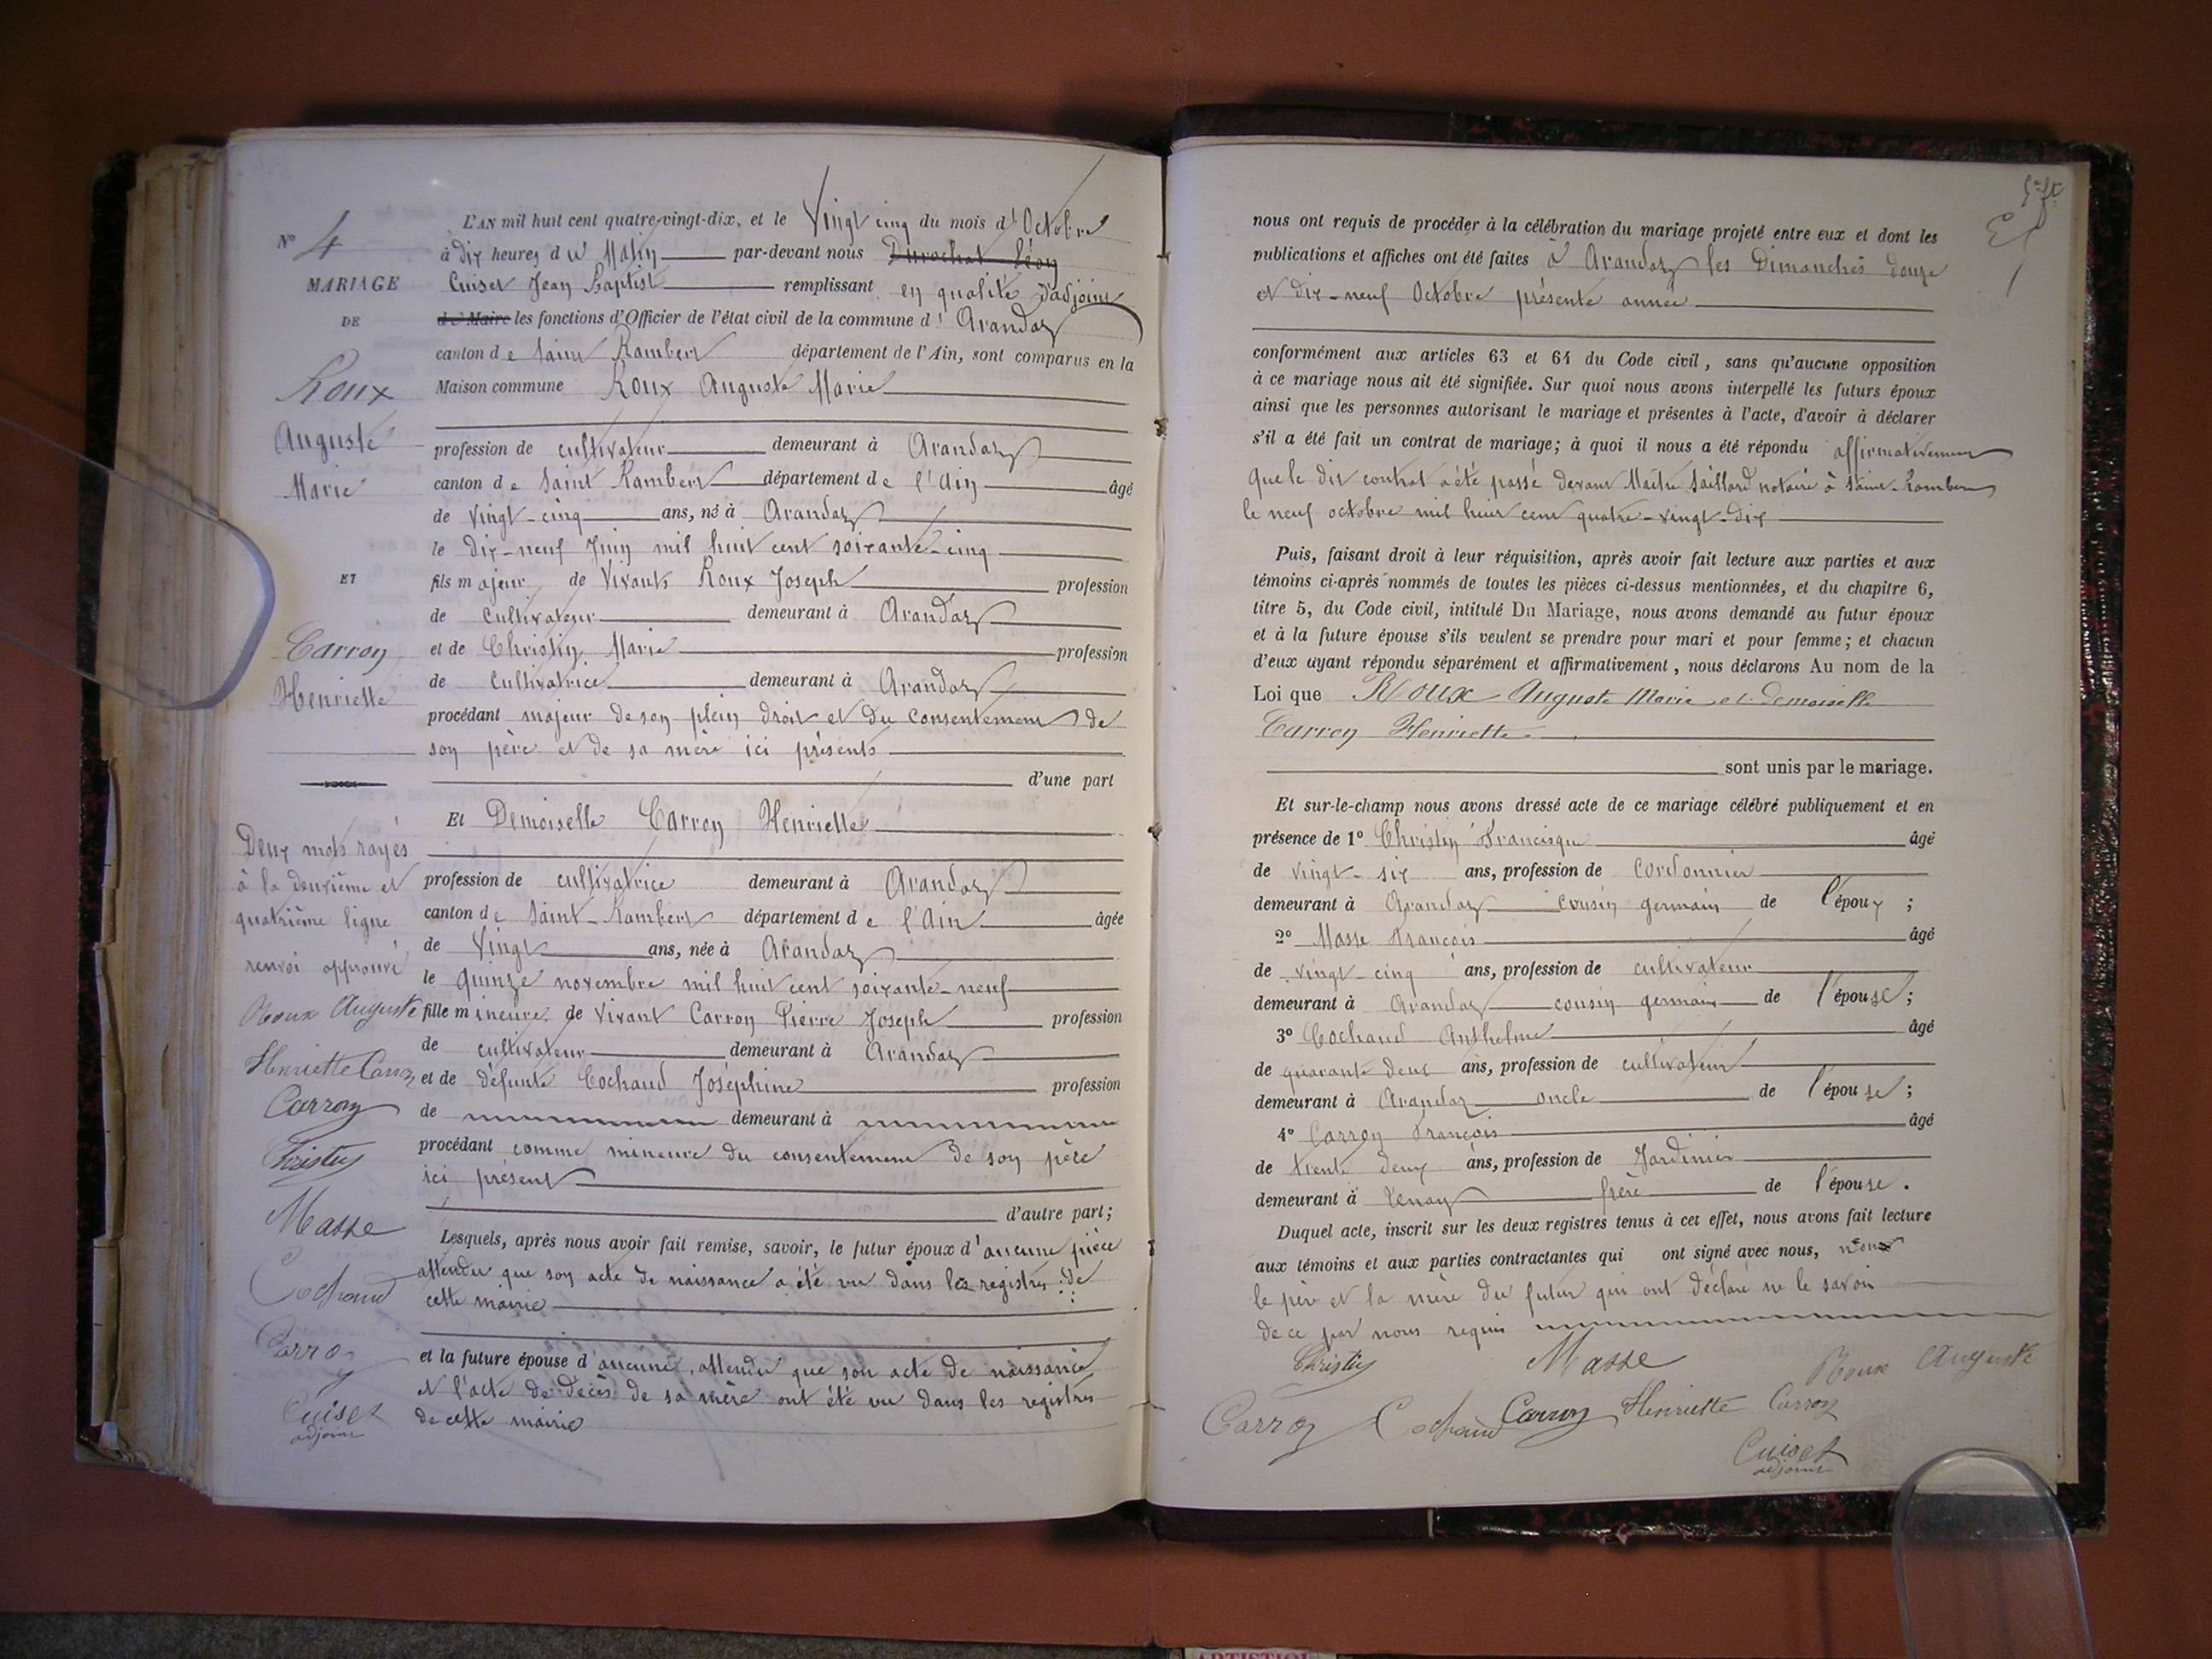 N° 4
MARIAGE
DE
Roux
Auguste
Marie
ET
Carron
Henriette
Deux mots rayés
à la deuxième et
quatrième ligne
renvoi approuvé
Roux Auguste
Henriette Carron
Carron
Christin
Masse
Cochaud
Carron
Cuiset
adjoint
L'AN mil huit cent quatre-vingt-dix, et le Vingt cinq du mois d'Octobre
à dix heures du Matin par-devant nous Durochat Léon
Cuiset Jean Baptist remplissant en qualité d'adjoint
de Maire les fonctions d'Officier de l'état civil de la commune d'Arandas
canton de Saint Rambert département de l'Ain, sont comparus en la
Maison commune Roux Auguste Marie
profession de cultivateur demeurant à Arandas
canton de Saint Rambert département de l'Ain âgé
de vingt-cinq ans, né à Arandas
le dix-neuf Juin mil huit cent soixante-cinq
fils majeur de Vivants Roux Joseph profession
de cultivateur demeurant à Arandas
et de Christin Marie profession
de cultivatrice demeurant à Arandas
procédant majeur de son plein droit et du consentement de
son père et de sa mère ici présents
d'une part
Et Demoiselle Carron Henriette
profession de cultivatrice demeurant à Arandas
canton de Saint-Rambert département de l'Ain âgée
de Vingt ans, née à Arandas
le quinze novembre mil huit cent soixante-neuf
fille mineure de vivant Carron Pierre Joseph profession
de cultivateur demeurant à Arandas
et de défunte Cochaud Joséphine profession
de demeurant à
procédant comme mineure du consentement de son père
ici présent
d'autre part;
Lesquels, après nous avoir fait remise, savoir, le futur époux d'aucune pièce
attendu que son acte de naissance a été vu dans les registres de
cette mairie
et la future épouse d'aucune, attendu que son acte de naissance
et l'acte de décès de sa mère ont été vu dans les registres
de cette mairie
nous ont requis de procéder à la célébration du mariage projeté entre eux et dont les
publications et affiches ont été faites à Arandas les Dimanches douze
et dix-neuf Octobre présente année
conformément aux articles 63 et 64 du Code civil, sans qu'aucune opposition
à ce mariage nous ait été signifiée. Sur quoi nous avons interpellé les futurs époux
ainsi que les personnes autorisant le mariage et présentes à l'acte, d'avoir à déclarer
s'il a été fait un contrat de mariage; à quoi il nous a été répondu affirmativement
que le dit contrat a été passé devant Maître Saillard notaire à Saint-Rambert
le neuf octobre mil huit cent quatre-vingt-dix
Puis, faisant droit à leur réquisition, après avoir fait lecture aux parties et aux
témoins ci-après nommés de toutes les pièces ci-dessus mentionnées, et du chapitre 6,
titre 5, du Code civil, intitulé Du Mariage, nous avons demandé au futur époux
et à la future épouse s'ils veulent se prendre pour mari et pour femme; et chacun
d'eux ayant répondu séparément et affirmativement, nous déclarons Au nom de la
Loi que Roux Auguste Marie et demoiselle
Carron Henriette
sont unis par le mariage.
Et sur-le-champ nous avons dressé acte de ce mariage célébré publiquement et en
présence de 1° Christin Francisque âgé
de vingt-six ans, profession de cordonnier
demeurant à Arandas cousin germain de l'époux ;
2° Masse François âgé
de vingt-cinq ans, profession de cultivateur
demeurant à Arandas cousin germain de l'épouse ;
3° Cochaud Anthelme âgé
de quarante deux ans, profession de cultivateur
demeurant à Arandas oncle de l'épouse ;
4° Carron François âgé
de trente deux ans, profession de Jardinier
demeurant à Tenay frère de l'épouse.
Duquel acte, inscrit sur les deux registres tenus à cet effet, nous avons fait lecture
aux témoins et aux parties contractantes qui ont signé avec nous, non
le père et la mère du futur qui ont déclaré ne le savoir
de ce par nous requis
Christin Masse Roux Auguste
Carron Cochaud Carron Henriette Carron
Cuiset
adjoint